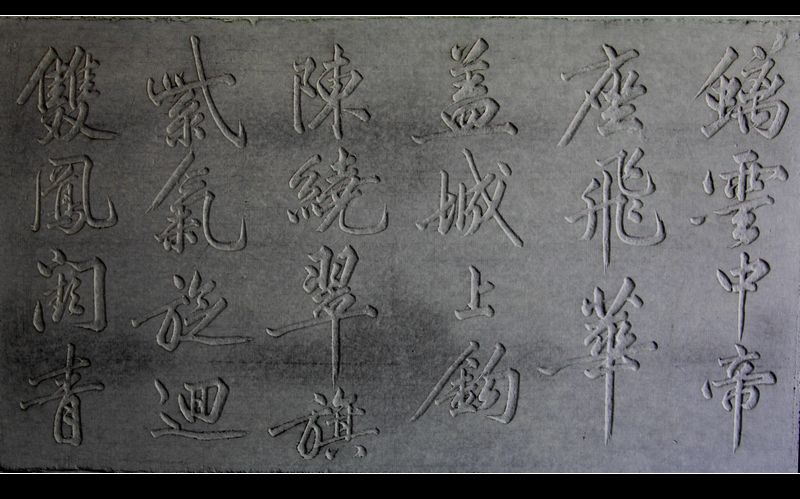 雲中帝
座飛華
盖城上鈎
陳繞翠旗
紫氣旋迴
雙鳳闕青